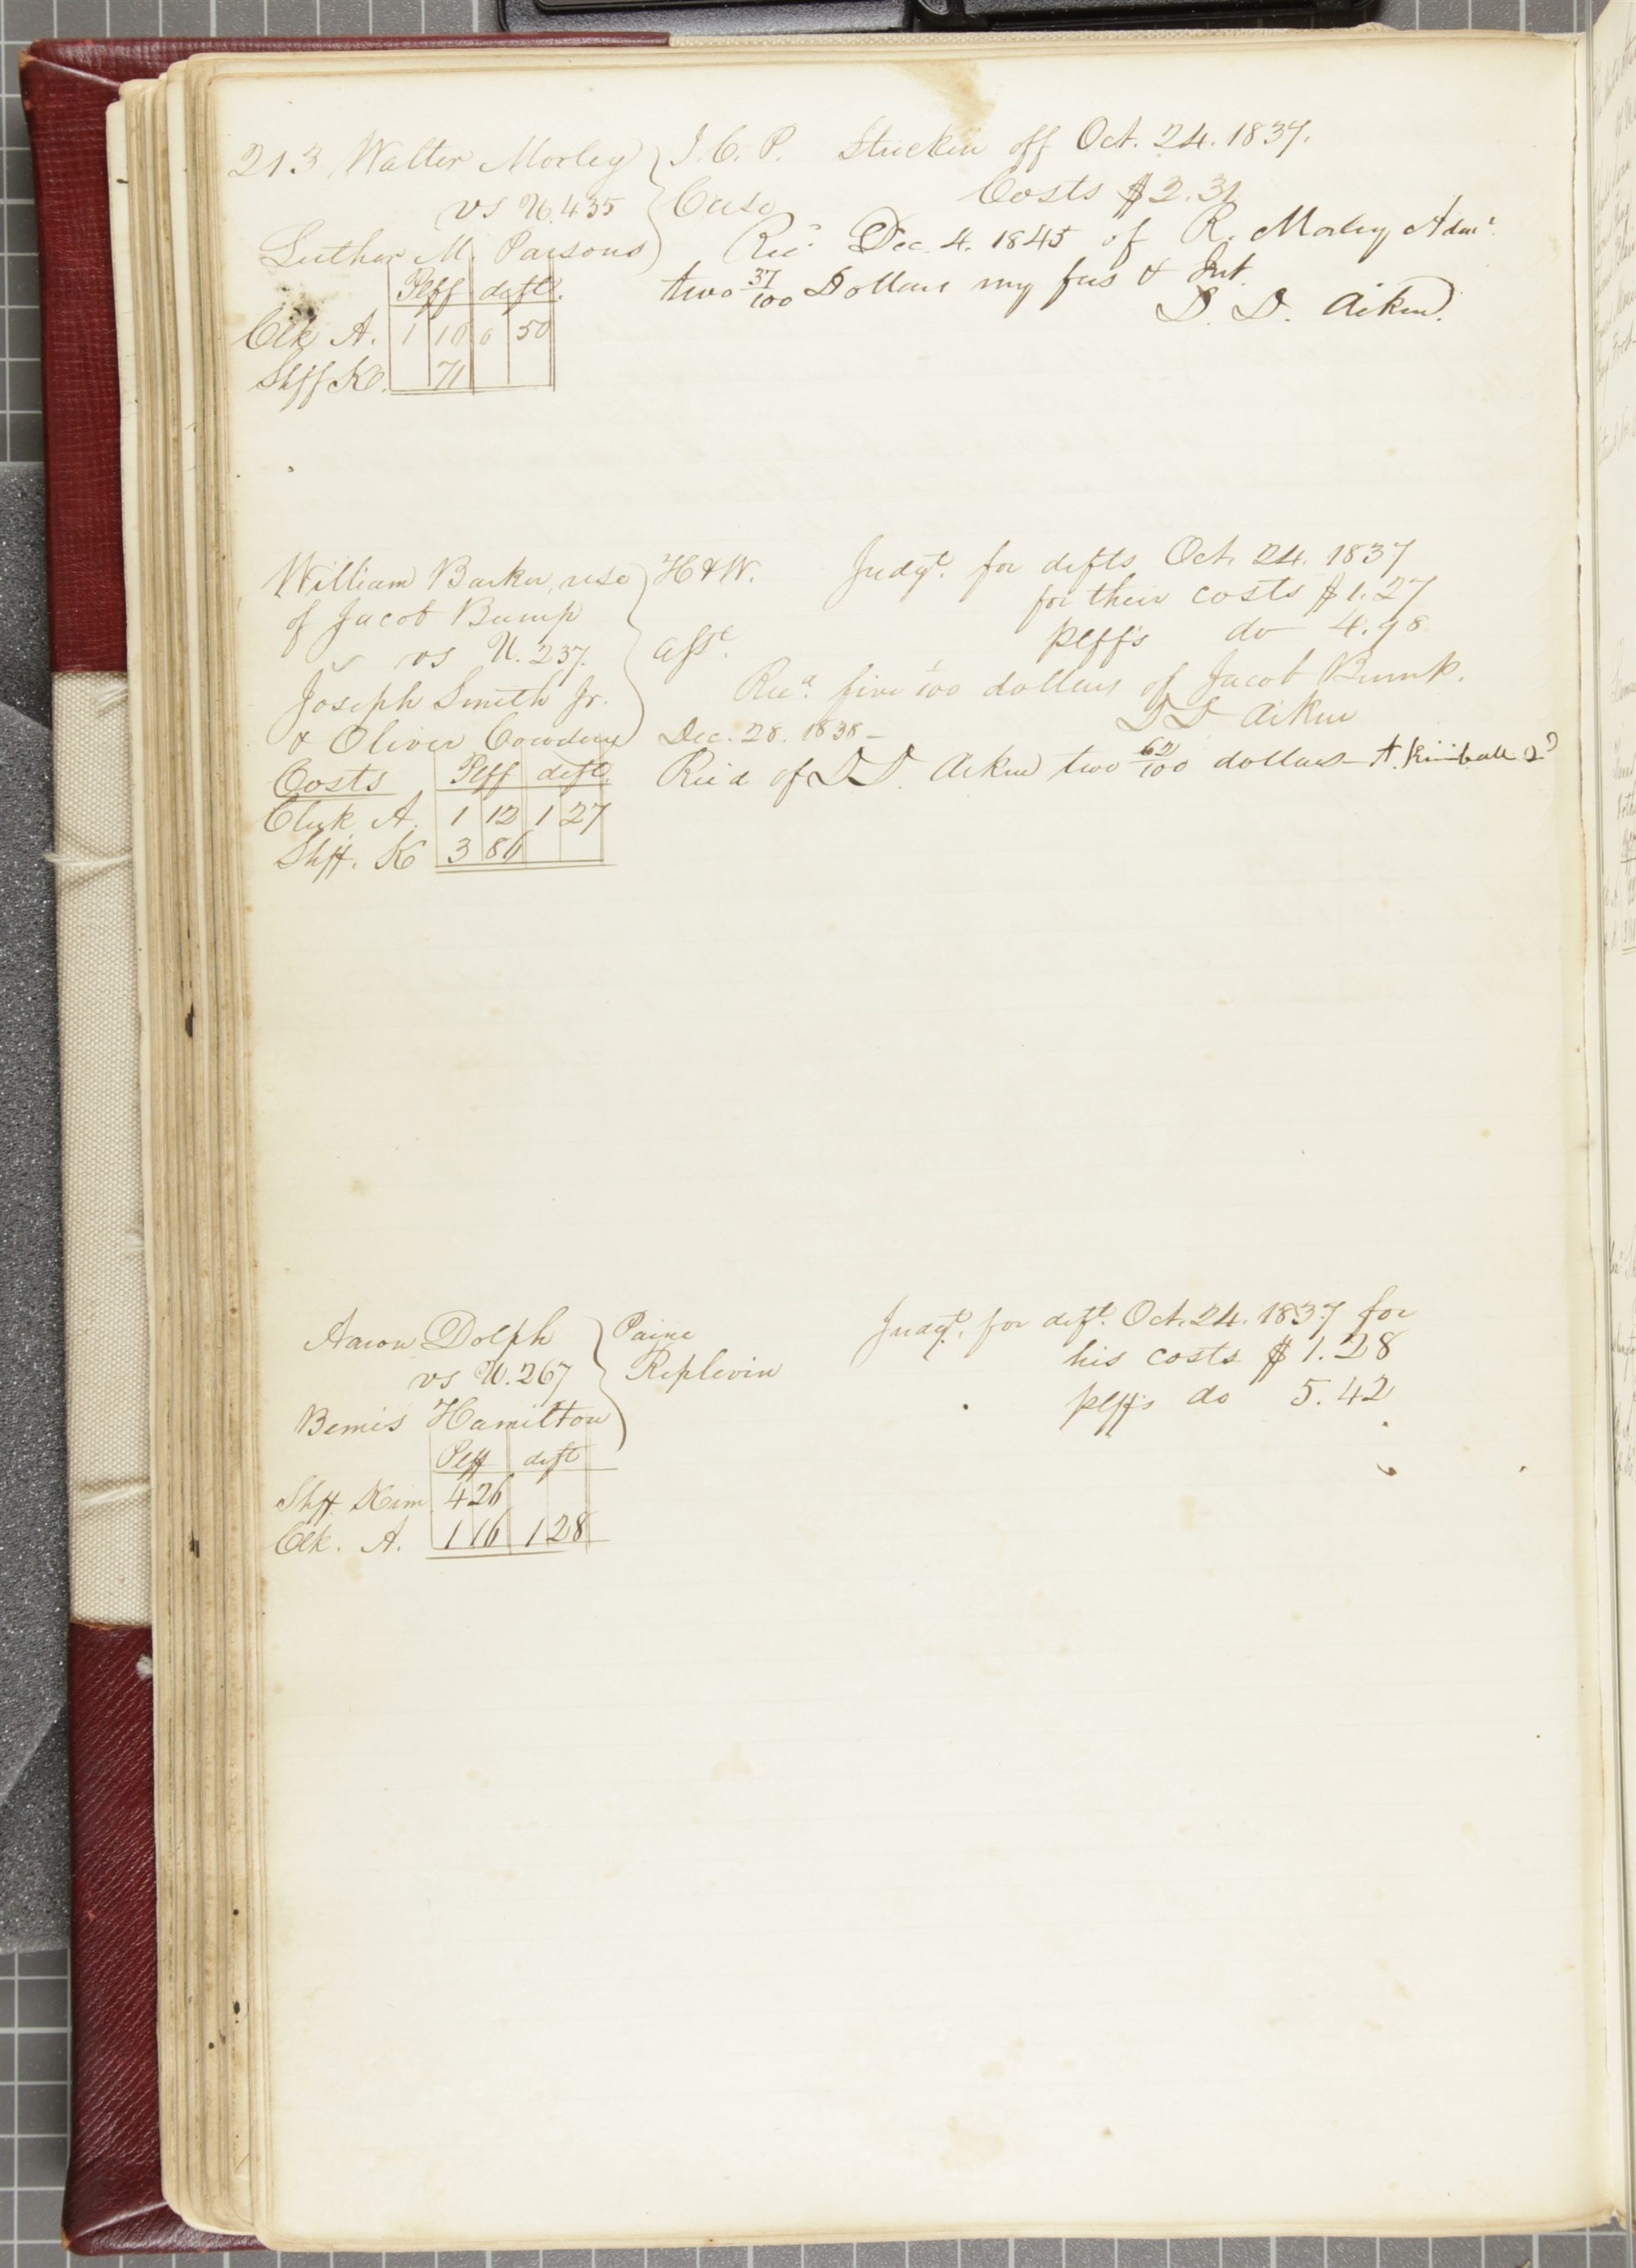 213 Walter Morley J. C. P. Stricken off Oct. 24. 1837.
vs U. 435 Case Costs $2.31
Luther M. Parsons Recd. Dec. 4. 1845 of R. Morley Admr.
two 37/100 Dollars my fees & Int.
D. D. Aiken.
Plff deft.
Clk A. 1 10 0 50
Shff K. 71
William Barker, use H & W. Judgt. for defts Oct. 24. 1837
of Jacob Bump for their costs $1.27
vs U. 237. Asst. plffs do 4.98
Joseph Smith Jr. Recd. five /100 dollars of Jacob Bump.
& Oliver Cowdery Dec. 28. 1838– D D Aiken
Costs Plff deft. Recd of D D. Aiken two 62/100 dollars – A. Kimball
Clerk A. 1 12 1 27
Shff. K 3 86
Aaron Dolph Paine Judgt. for deft. Oct. 24. 1837 for
vs U. 267 Replevin his costs $1.28
Bemis Hamilton plffs do 5.42
Plff deft
Shff. Kim 4 26
Clk. A. 1 16 1 28